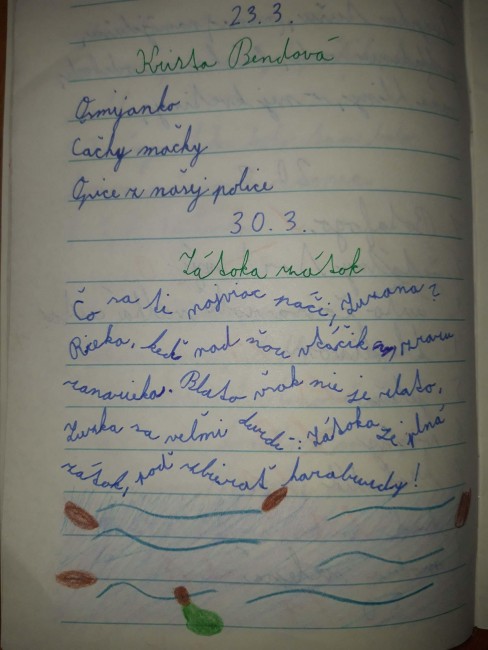 23.3.
Krista Bendová
Osmijanko
Čačky mačky
Opice z našej police
30.3.
Zátoka zátok
Čo sa ti najviac páči, Zuzana?
Rieka, keď nad ňou vtáčik zrazu
zanarieka. Blato však nie je zlato,
Zuzka sa veľmi durdí: Zátoka je plná
zátok, poď zbierať haraburdy!